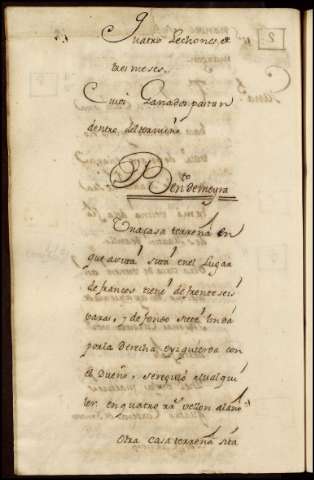 Quatro Lechones, de
tres meses.
Cuios Ganados pastan
dentro, del termino
Una casa terrena en
que avita, sita en el Lugar
de frances tiene de frente seis
baras, y de fondo siete linda
por la derecha, e yzquierda con
el Dueño, se regulo el alqui
ler, en quatro rs. vellon al año
Otra casa terrena sita